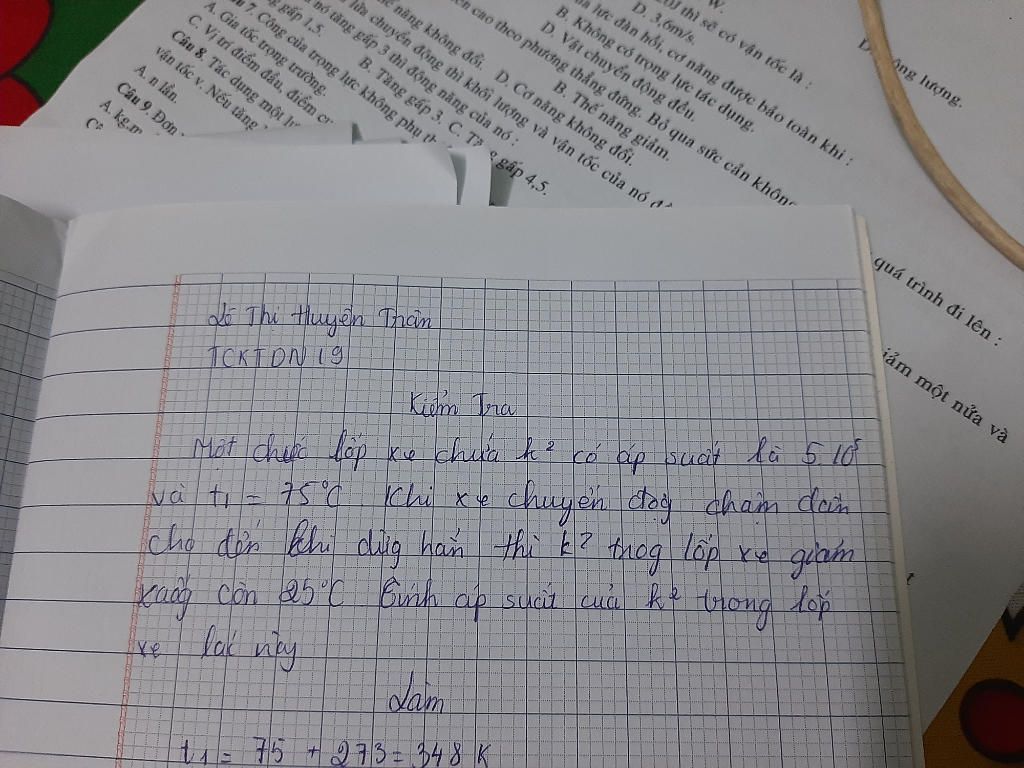 W.
20J thì sẽ có vận tốc là :
D. 3,6m/s.
lực đàn hồi, cơ năng được bảo toàn khi :
B. Không có trọng lực tác dụng.
D. Vật chuyển động đều.
cao theo phương thẳng đứng. Bỏ qua sức cản không
B. Thế năng giảm.
năng không đổi.
D. Cơ năng không đổi.
chuyển động thì khối lượng và vận tốc của nó
nó tăng gấp 3 thì động năng của nó :
gấp 1,5.
B. Tăng gấp 3. C. Tăng gấp 4,5.
7. Công của trọng lực không phụ
A. Gia tốc trọng trường.
C. Vị trí điểm đầu, điểm
Câu 8. Tác dụng một
vận tốc v. Nếu tăng
A. n lần.
Câu 9. Đơn
A. kg.m
D.
lượng.
quá trình đi lên :
giảm một nửa và
Lê Thị Huyền Trân
TCKTDN 19
Kiểm Tra
Một chiếc lốp xe chứa k² có áp suất là 5.10⁵
và t₁ = 75°C Khi xe chuyển độg chậm dần
cho đến khi dừg hẳn thì k² trog lốp xe giảm
xuốg còn 25°C tính áp suất của k² trong lốp
xe lúc này
Làm
t₁ = 75 + 273 = 348 K